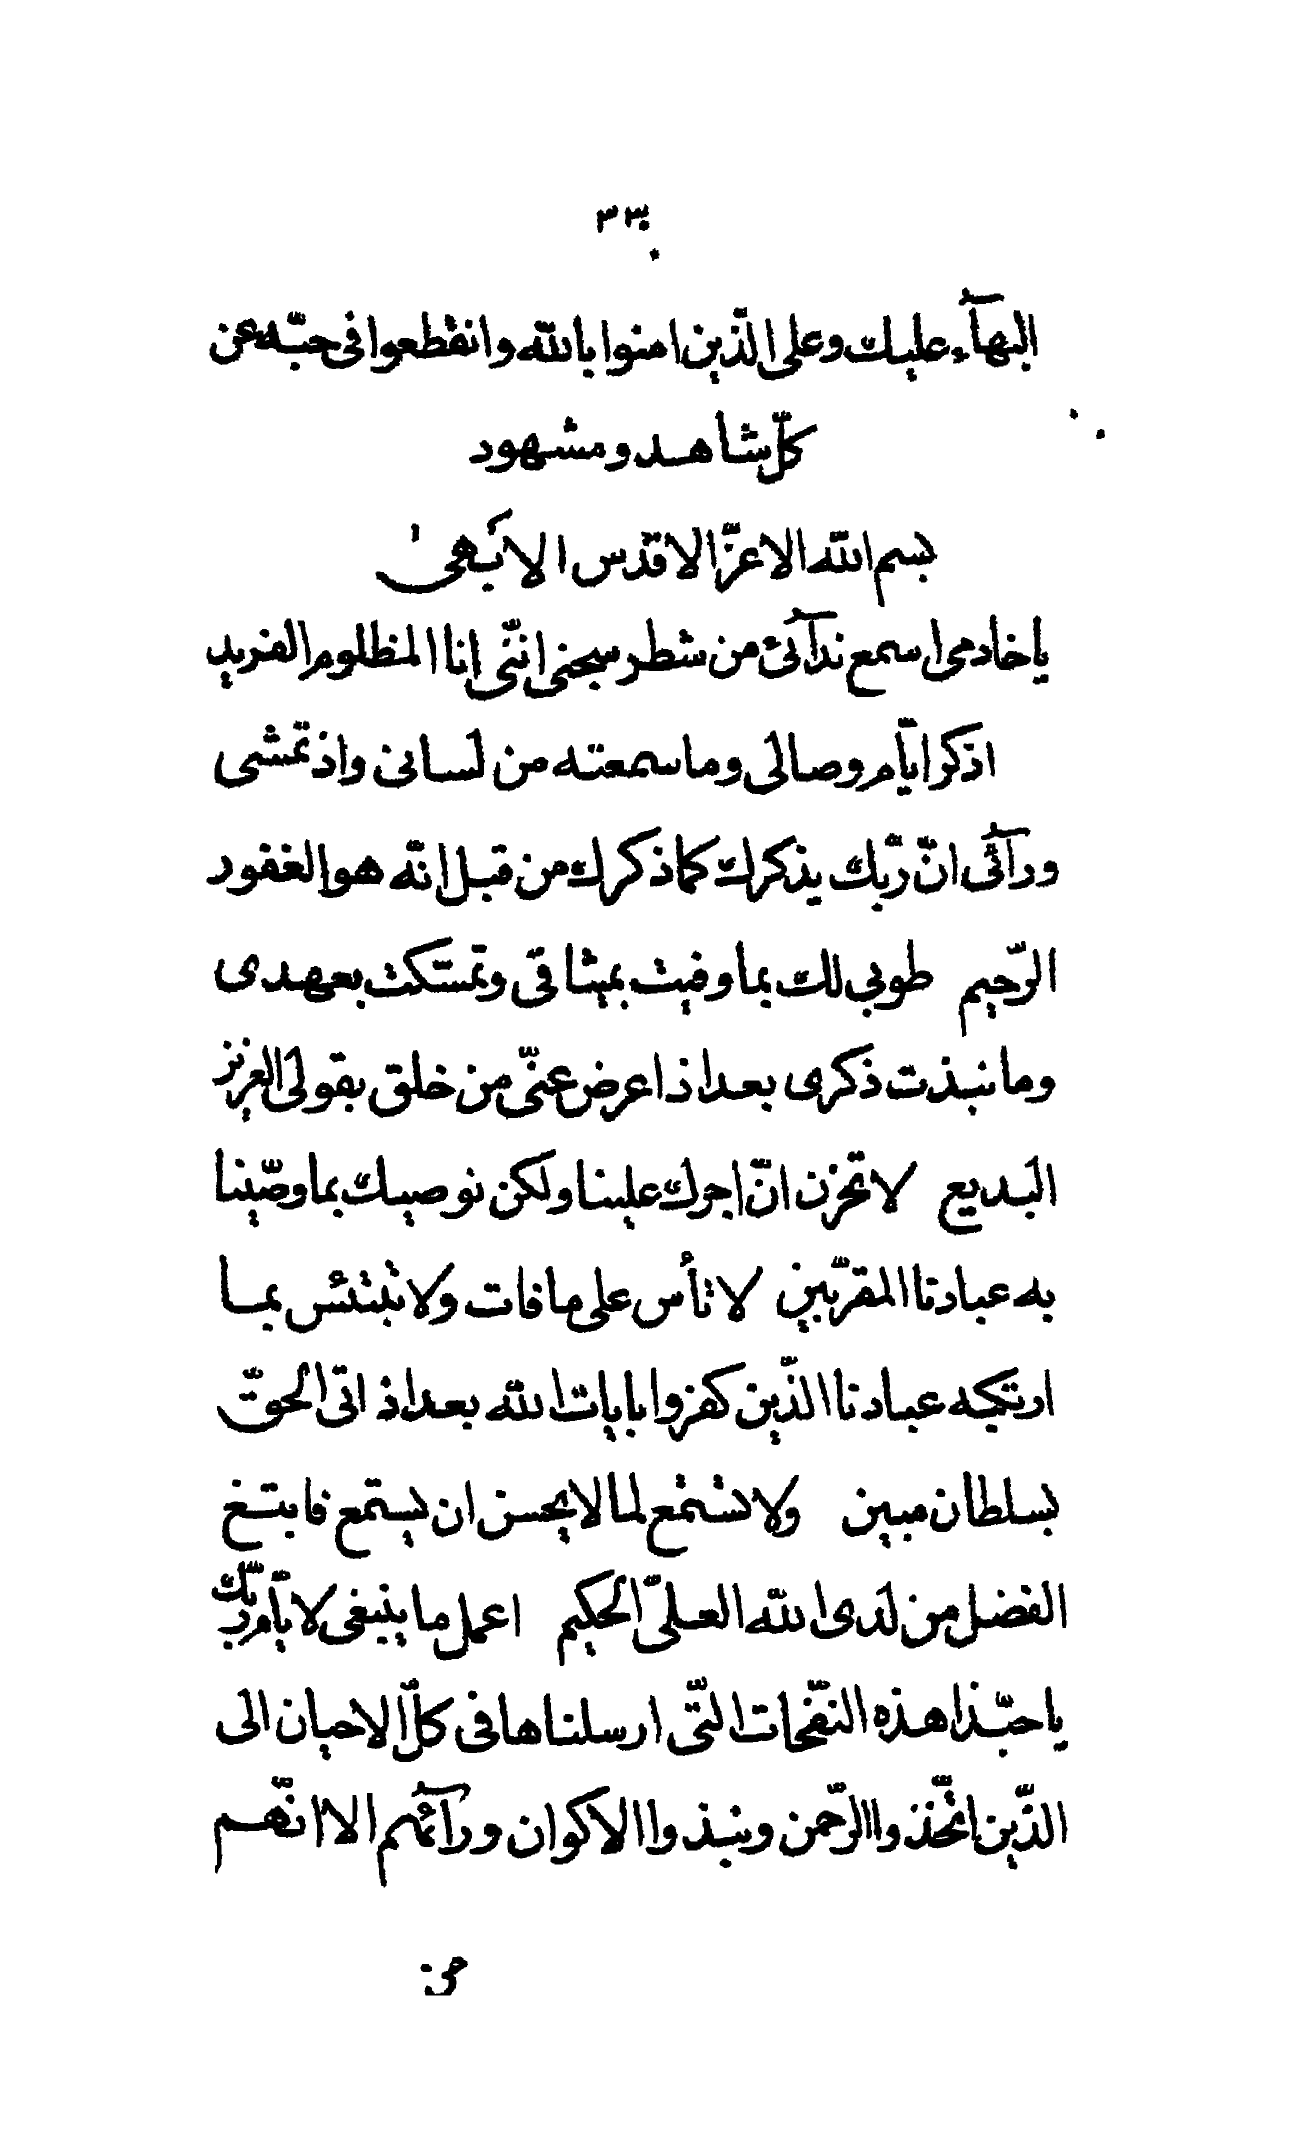 ٣٣٠
البهآء عليك و على الّذين امنوا بالله و انقطعوا فى حبّه عن
كلّ شاهد و مشهود
بسم الله الاعزّ الاقدس الابهى
يا خادمى اسمع ندآئى من شطر سجنى انّنى انا المظلوم الفريد
اذكر ايّام وصالى و ما سمعته من لسانى و اذ تمشى
ورآئى انّ ربّك يذكرك كما ذكرك من قبل انّه هو الغفور
الرّحيم طوبى لك بما وفيت بميثاقى و تمسّكت بعهدى
و ما نبذت ذكرى بعد اذ اعرض عنّى من خلق بقولى العزيز
البديع لا تحزن انّ اجرك علينا ولكن نوصيك بما وصّينا
به عبادنا المقرّبين لا تأس على ما فات و لا تبتئس بما
ارتكبه عبادنا الّذين كفروا بايات الله بعد اذ اتى الحقّ
بسلطان مبين و لا تستمع لما لا يحسن ان يستمع فابتغ
الفضل من لدى الله العلىّ الحكيم اعمل ما ينبغى لايّام ربّك
يا حبّذا هذه النفّحات الّتى ارسلناها فى كلّ الاحيان الى
الّذين اتّخذوا الرّحمن و نبذوا الاكوان ورآئهم الا انّهم